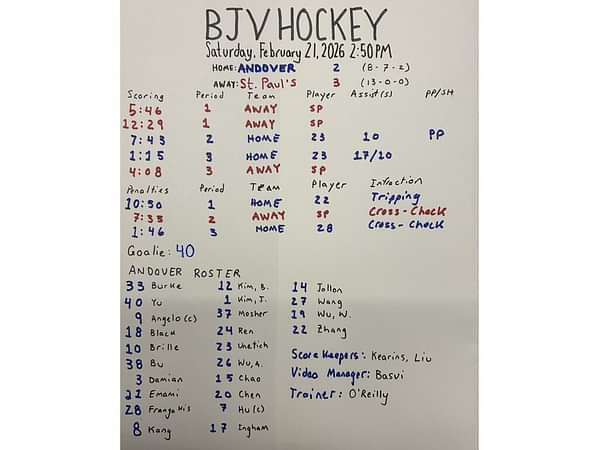 BJV HOCKEY
Saturday, February 21, 2026 2:50PM
HOME: ANDOVER 2 (8-7-2)
AWAY: St. Paul's 3 (13-0-0)
Scoring Period Team Player Assist(s) PP/SH
5:46 1 AWAY SP
12:29 1 AWAY SP
7:43 2 HOME 23 10 PP
1:15 3 HOME 23 17/10
4:08 3 AWAY SP
Penalties Period Team Player Infraction
10:50 1 HOME 22 Tripping
7:35 2 AWAY SP Cross-Check
1:46 3 HOME 28 Cross-Check
Goalie: 40
ANDOVER ROSTER
33 Burke 12 Kim, B. 14 Tollon
40 Yu 1 Kim, J. 27 Wang
9 Angelo (c) 37 Mosher 19 Wu, W.
18 Black 24 Ren 22 Zhang
10 Brille 23
38 Bu 26 Wu, A.
3 Damian 15 Chao
Emami 20 Chen
28 7 Hu (c)
8 Kang 17 Ingham
Score Keepers: Kearins, Liu
Video Manager: Basvi
Trainer: O'Reilly